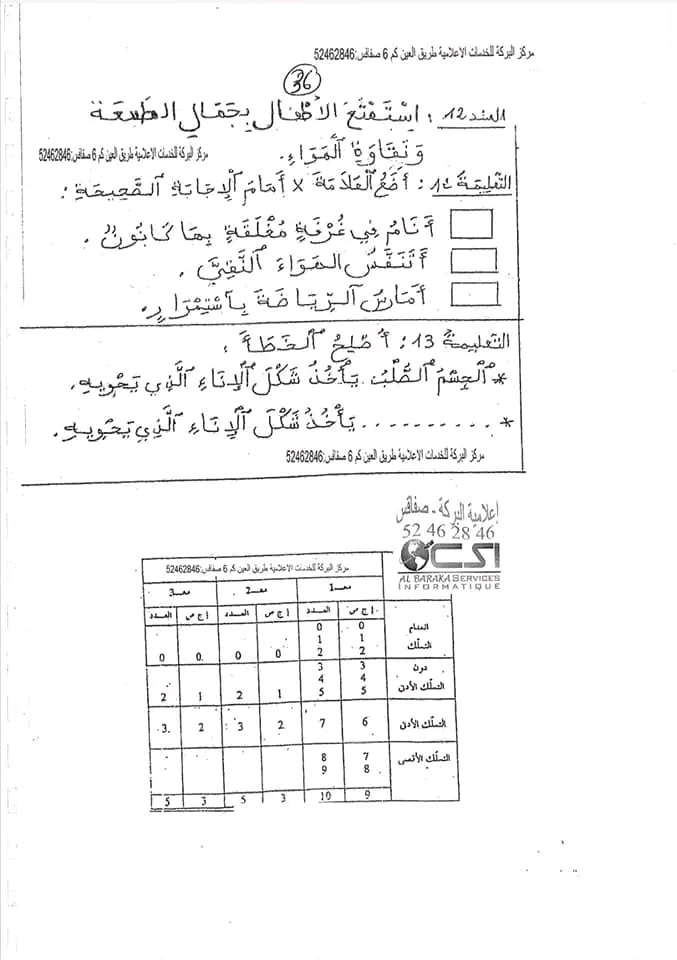 مركز البركة للخدمات الاعلامية طريق العين كم 6 صفاقس:52462846
36
السند 12: اِسْتَمْتَعَ الْأَطْفَالُ بِجَمَالِ الطَّبِيعَةِ
وَنَقَاوَةِ الْهَوَاءِ.
مركز البركة للخدمات الاعلامية طريق العين كم 6 صفاقس:52462846
التَّعْلِيمَةُ 12: أَضَعُ الْعَلَامَةَ x أَمَامَ الْإِجَابَةِ الصَّحِيحَةِ:
أَنَامُ فِي غُرْفَةٍ مُغْلَقَةٍ بِهَا كَانُونٌ.
أَتَنَفَّسُ الهَوَاءَ النَّقِيَّ.
أُمَارِسُ الرِّيَاضَةَ بِاسْتِمْرَارٍ.
التَّعْلِيمَةُ 13: أُصْلِحُ الْخَطَأَ.
* الْجِسْمُ الصُّلْبُ يَأْخُذُ شَكْلَ الْإِنَاءِ الَّذِي يَحْوِيهِ.
* .......... يَأْخُذُ شَكْلَ الْإِنَاءِ الَّذِي يَحْوِيهِ.
مركز البركة للخدمات الاعلامية طريق العين كم 6 صفاقس:52462846
إعلامية البركة - صفاقس
52 46 28 46
CSI
AL BARAKA SERVICES
INFORMATIQUE
مركز البركة للخدمات الاعلامية طريق العين كم 6 صفاقس:52462846
معـ1 معـ2 معـ3
إ ج ص العدد إ ج ص العدد إ ج ص العدد
انعدام 0 0
التملك 1 1
2 2 0 0 0 0
دون 3 3
4 4
التملك الأدنى 5 5 1 2 1 2
التملك الأدنى 6 7 2 3 2 3
التملك الأقصى 7 8
8 9
9 10 3 5 3 5